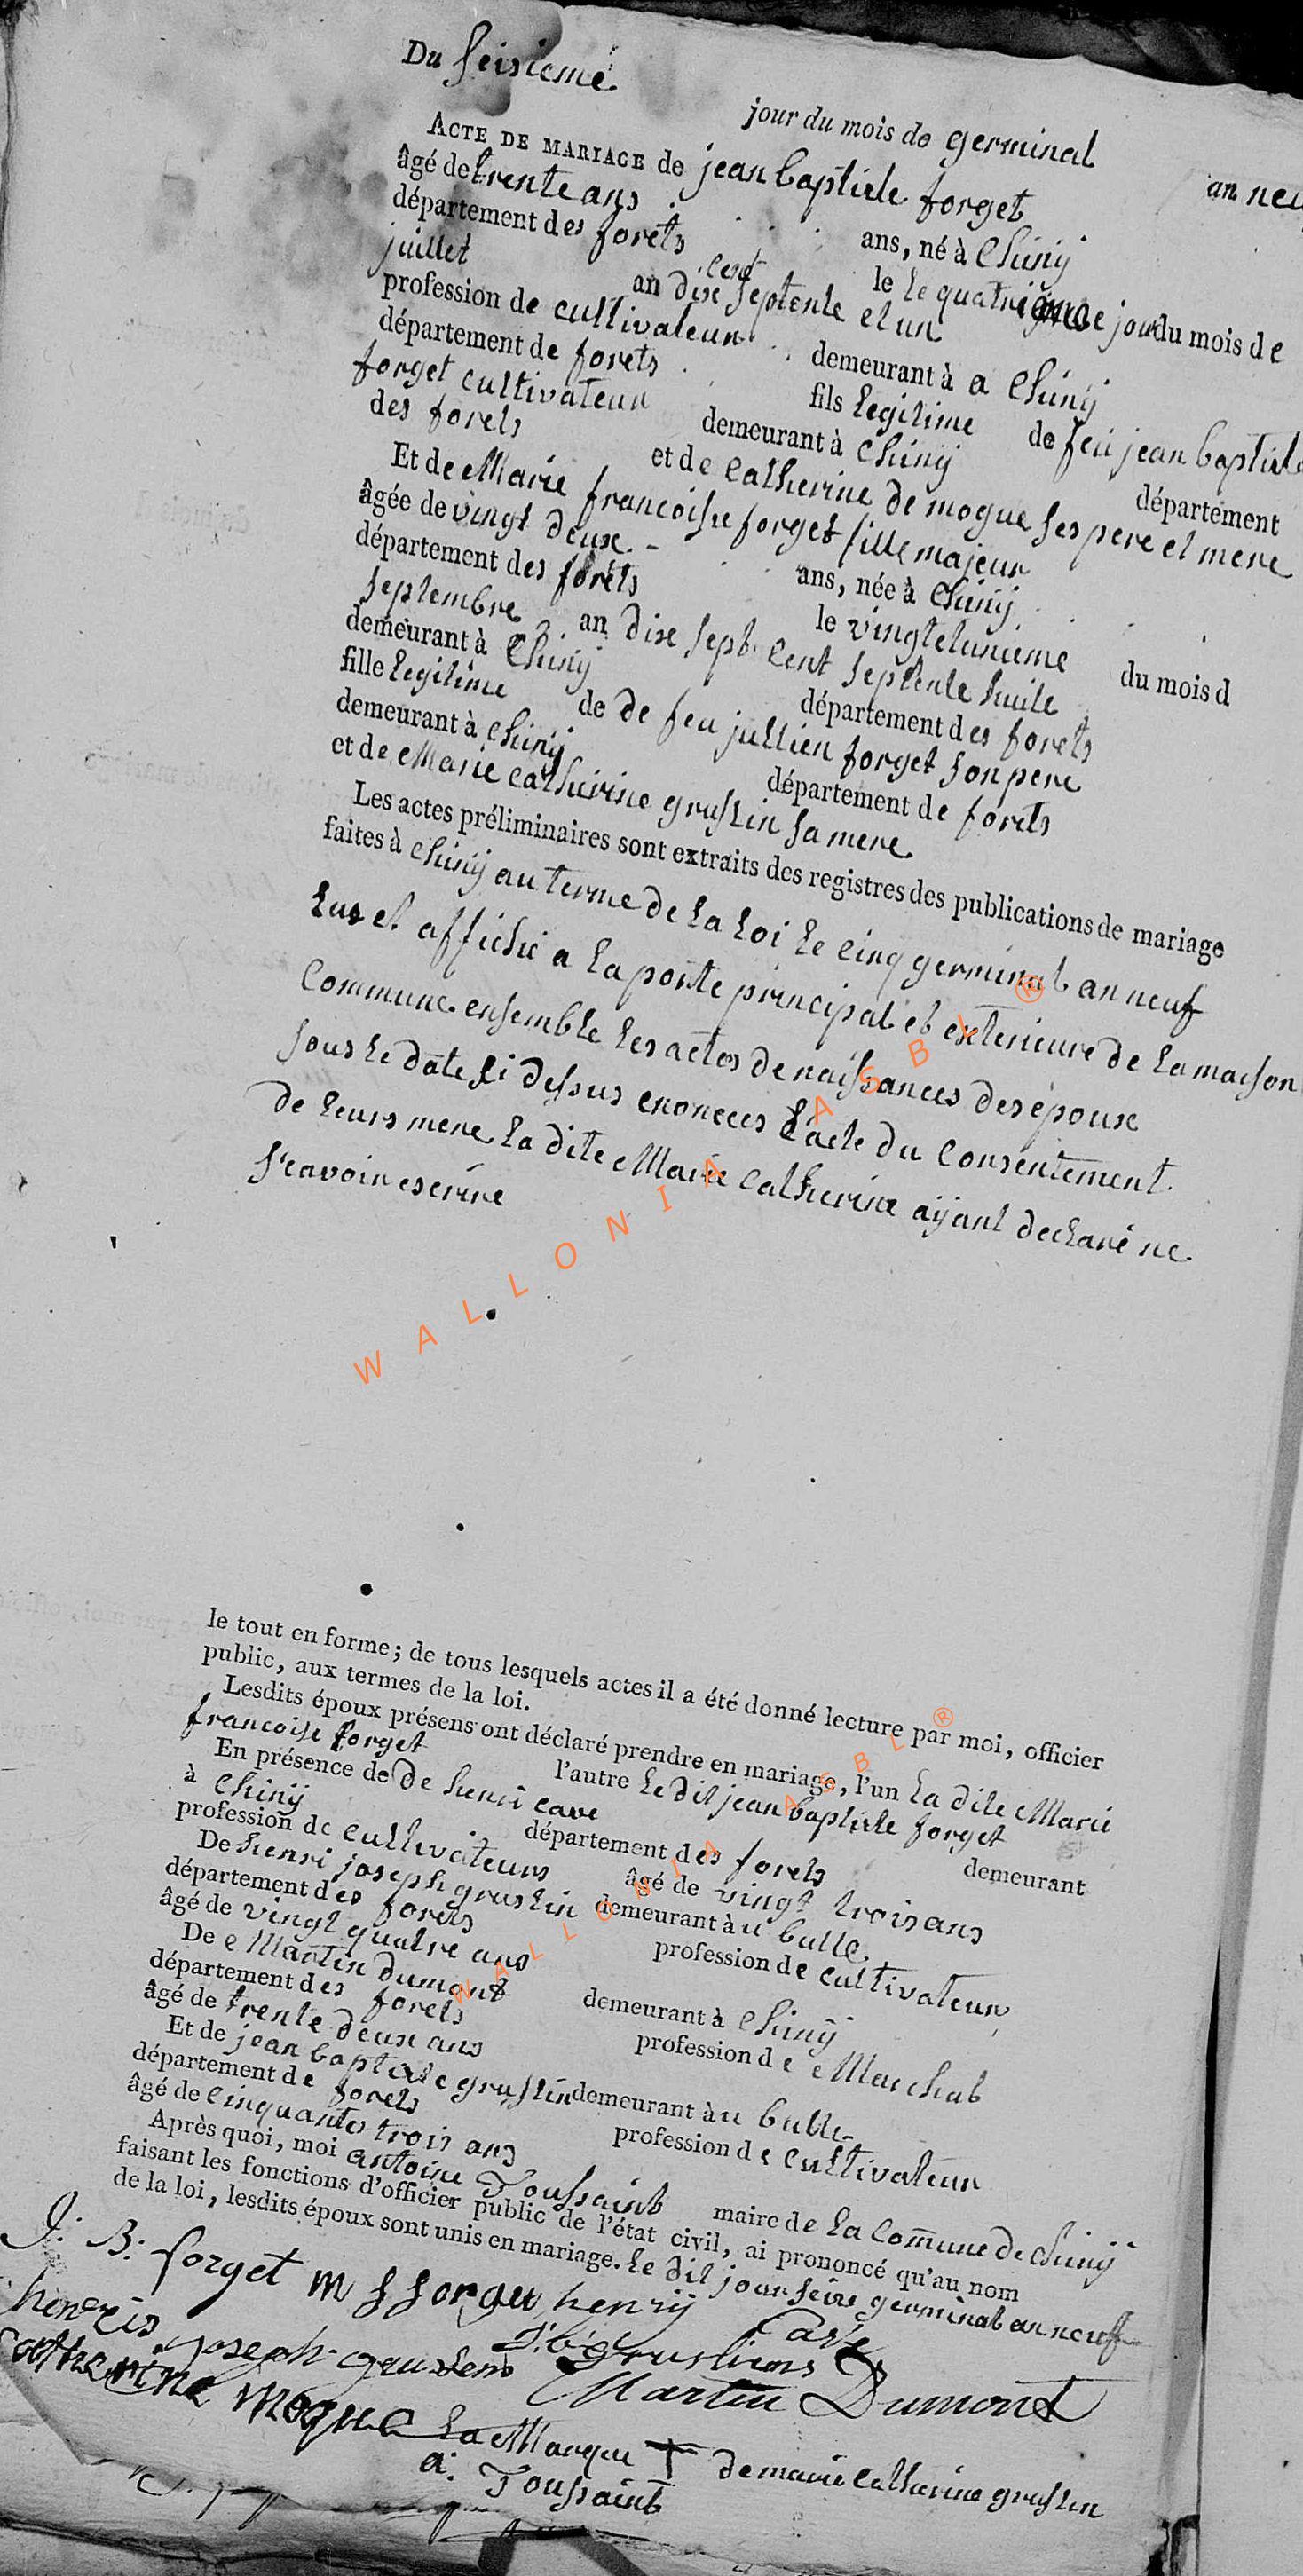 Du seisieme jour du mois de germinal an neu
ACTE DE MARIAGE de jean baptiste forget
âgé de trente ans ans, né à Chinÿ
département des forêts le le quatrieme jour du mois de
juillet an dix sept cent septente et un
profession de cultivateur demeurant à a Chinÿ
département de forets fils legitime de feu jean baptiste
forget cultivateur demeurant à Chinÿ département
des forets et de Catherine de mogue ses pere et mere
Et de Marie francoise forget fille majeur
âgée de vingt deux ans, née à Chinÿ
département des forêts le vingtetunieme du mois d
septembre an dix sept cent septente huite
demeurant à Chinÿ département des forets
fille legitime de de feu jullien forget son pere
demeurant à Chinÿ département de forets
et de Marie Catherine gruslin sa mere
Les actes préliminaires sont extraits des registres des publications de mariage
faites à Chinÿ au terme de la loi le cinq germinal an neuf
lue et affiché a la porte principal et exterieure de la maison
Commune ensemble les actes de naissances des époux
sous le date si dessus enoncees l'acte du Consentement
de leurs mere la dite Marie Catherine aÿant declaré ne
scavoir escrire
le tout en forme; de tous lesquels actes il a été donné lecture par moi, officier
public, aux termes de la loi.
Lesdits époux présens ont déclaré prendre en mariage, l'un la dite Marie
francoise forget l'autre le dit jean baptiste forget
En présence de de henri cave demeurant
à Chinÿ département des forets
profession de cultivateurs âgé de vingt trois ans
De henri joseph gruslin demeurant àu bulle
département des forets profession de cultivateur
âgé de vingt quatre ans
De Martin dumont demeurant à Chinÿ
département des forets profession de Marchal
âgé de trente deux ans
Et de jean baptiste gruslin demeurant àu bulle
département de forets profession de cultivateur
âgé de cinquantes trois ans
Après quoi, moi antoine Toussaint maire de la Commune de Chinÿ
faisant les fonctions d'officier public de l'état civil, ai prononcé qu'au nom
de la loi, lesdits époux sont unis en mariage. le dit jour seize germinal an neuff
J: B: forget m f forget henrÿ Cave
henris joseph gruslens J:b: gruslins
Martin Dumont
Catherine Moque la Marque † de marie Catherine gruslin
a: Toussaint
WALLONIA ASBL ®
WALLONIA ASBL ®